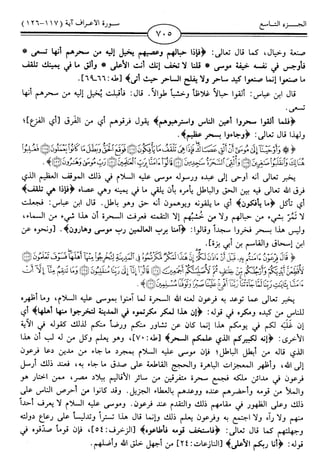 الجـــزء التـاســع
٧٠٥
سورة الأعراف آية (١١٧-١٢٦)
صنعة وخيال، كما قال تعالى: ﴿فإذا حبالهم وعصيهم يخيل إليه من سحرهم أنها تسعى *
فأوجس في نفسه خيفة موسى * قلنا لا تخف إنك أنت الأعلى * وألق ما في يمينك تلقف
ما صنعوا إنما صنعوا كيد ساحر ولا يفلح الساحر حيث أتى﴾ [طه: ٦٦-٦٩].
قال ابن عباس: ألقوا حبالاً غلاظاً وخشباً طوالاً. قال: فأقبلت يُخيل إليه من سحرهم أنها
تسعى.
﴿فلما ألقوا سحروا أعين الناس واسترهبوهم﴾ يقول فرقوهم أي من الفَرَق [أي الفزع]؛
ولهذا قال تعالى: ﴿وجاءوا بسحر عظيم﴾.
يخبر تعالى أنه أوحى إلى عبده ورسوله موسى عليه السلام في ذلك الموقف العظيم الذي
فرق الله تعالى فيه بين الحق والباطل يأمره بأن يلقي ما في يمينه وهي عصاه ﴿فإذا هي تلقف﴾
أي تأكل ﴿ما يأفكون﴾ أي ما يلقونه ويوهمون أنه حق وهو باطل. قال ابن عباس: فجعلت
لا تَمُرّ بشيء من حبالهم ولا من خُشُبهم إلا التقمته فعرفت السحرة أن هذا شيء من السماء،
وليس هذا بسحر فخروا سجداً وقالوا: ﴿آمنا برب العالمين رب موسى وهارون﴾. [ونحوه عن
ابن إسحاق والقاسم بن أبي بزة].
يخبر تعالى عما توعد به فرعون لعنه الله السحرة لما آمنوا بموسى عليه السلام، وما أظهره
للناس من كيده ومكره في قوله: ﴿إن هذا لمكر مكرتموه في المدينة لتخرجوا منها أهلها﴾ أي
إن غَلَبَه لكم في يومكم هذا إنما كان عن تشاور منكم ورضاً منكم لذلك كقوله في الآية
الأخرى: ﴿إنه لكبيركم الذي علمكم السحر﴾ [طه: ٧٠]. وهو يعلم وكل من له لب أن هذا
الذي قاله من أبطل الباطل؛ فإن موسى عليه السلام بمجرد ما جاء من مدين دعا فرعون
إلى الله، وأظهر المعجزات الباهرة والحجج القاطعة على صدق ما جاء به، فعند ذلك أرسل
فرعون في مدائن ملكه فجمع سحرة متفرقين من سائر الأقاليم ببلاد مصر، ممن اختار هو
والملأ من قومه وأحضرهم عنده ووعدهم بالعطاء الجزيل. وقد كانوا من أحرص الناس على
ذلك وعلى الظهور في مقامهم ذلك والتقدم عند فرعون. وموسى عليه السلام لا يعرف أحداً
منهم ولا رآه ولا اجتمع به وفرعون يعلم ذلك وإنما قال هذا تستراً وتدليساً على رعاع دولته
وجهلتهم كما قال تعالى: ﴿فاستخف قومه فأطاعوه﴾ [الزخرف: ٥٤]. فإن قوماً صدّقوه في
قوله: ﴿أنا ربكم الأعلى﴾ [النازعات: ٢٤] من أجهل خلق الله وأضلهم.